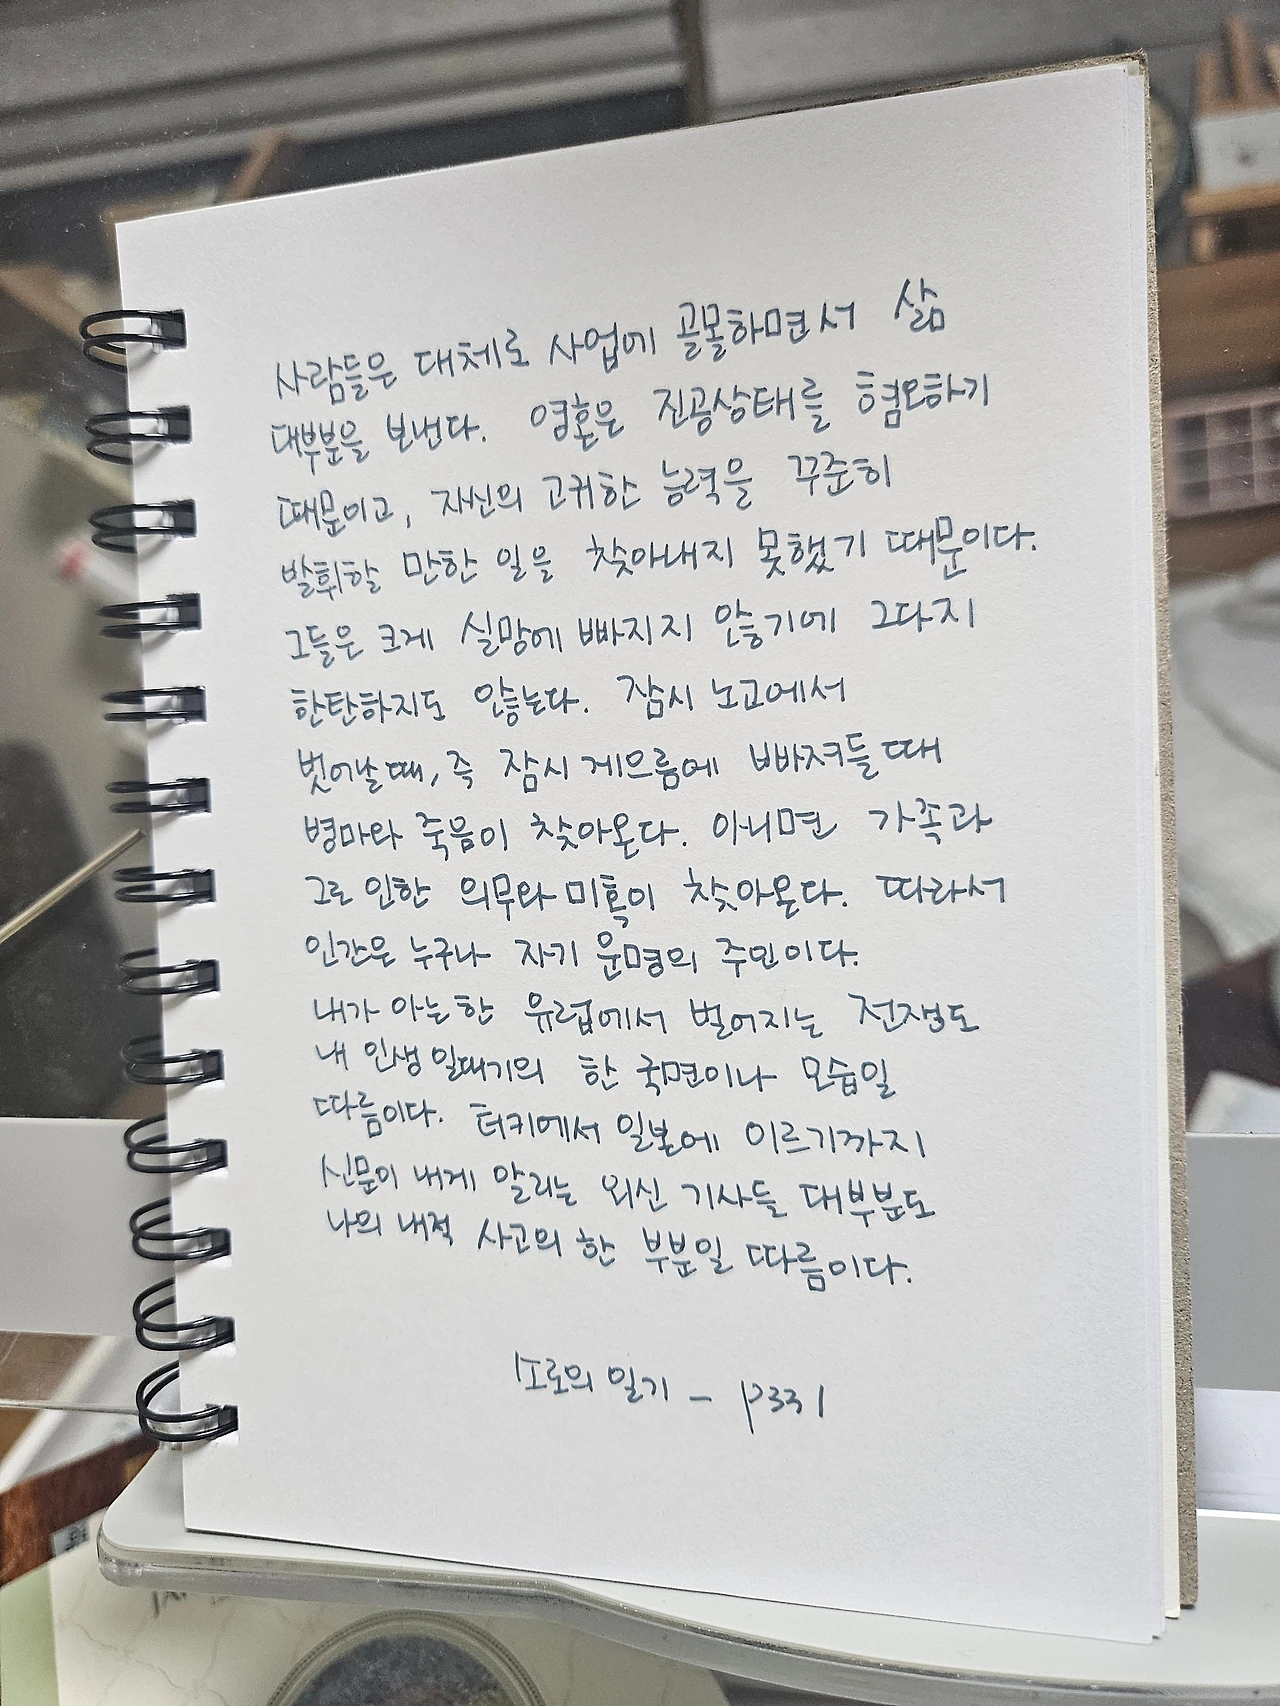 사람들은 대체로 사업에 골몰하면서 삶
대부분을 보낸다. 영혼은 진공상태를 혐오하기
때문이고, 자신의 고귀한 능력을 꾸준히
발휘할 만한 일을 찾아내지 못했기 때문이다.
그들은 크게 실망에 빠지지 않기에 그다지
한탄하지도 않는다. 잠시 노고에서
벗어날 때, 즉 잠시 게으름에 빠져들 때
병마와 죽음이 찾아온다. 아니면 가족과
그로 인한 의무와 미혹이 찾아온다. 따라서
인간은 누구나 자기 운명의 주인이다.
내가 아는 한 유럽에서 벌어지는 전쟁도
내 인생 일대기의 한 국면이나 모습일
따름이다. 터키에서 일본에 이르기까지
신문이 내게 알리는 외신 기사들 대부분도
나의 내적 사고의 한 부분일 따름이다.
소로의 일기 - p331